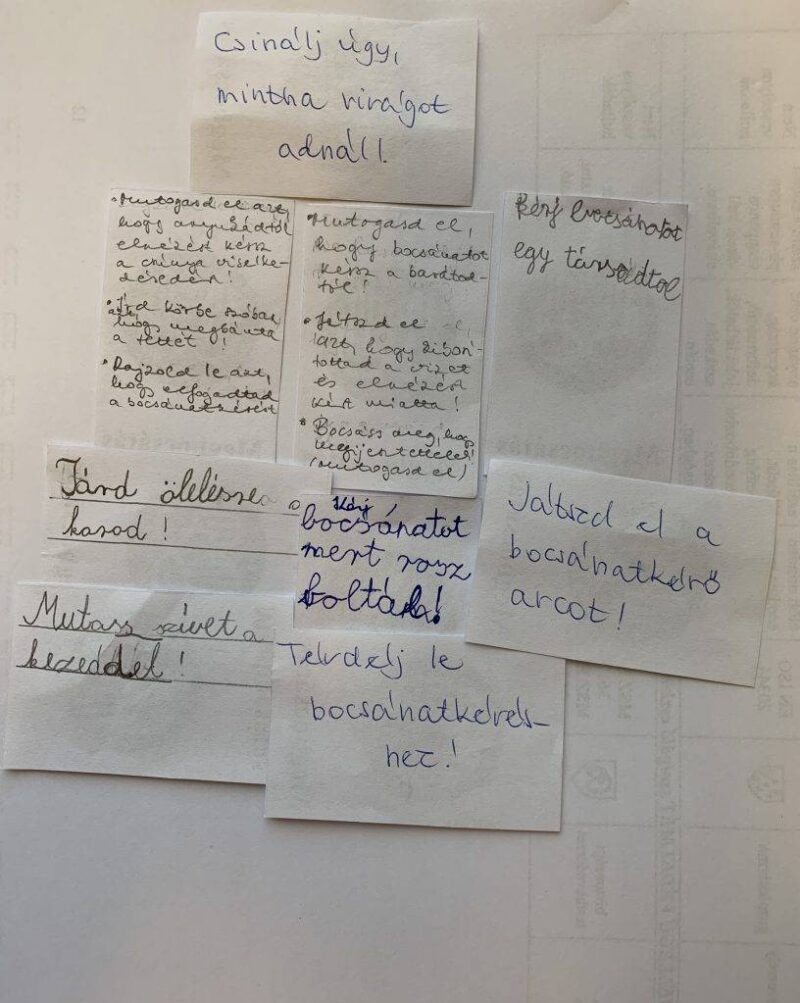 Csinálj úgy,
mintha virágot
adnál!
• Mutogasd el azt,
hogy anyukádtól
elnézést kérsz
a csúnya viselke-
désedért!
• Írd körbe szóban
azt,
hogy megbánta
a tettét!
• Rajzold le azt,
hogy elfogadtad
a bocsánatkérést
• Mutogasd el,
hogy bocsánatot
kérsz a barátod-
tól!
• Játszd el
azt, hogy kibon-
tottad a vizet
és elnézést
kért miatta!
• Bocsáss meg, hogy
megijentettelek!
(Mutogasd el)
Kérj bocsánatot
egy társadtol
Tárd ölelésre a
karod!
Kérj
bocsánatot
mert rosz
voltál!
Játszd el a
bocsánatkérő
arcot!
Mutass szívet a
kezeddel!
Térdelj le
bocsánatkérés-
hez!